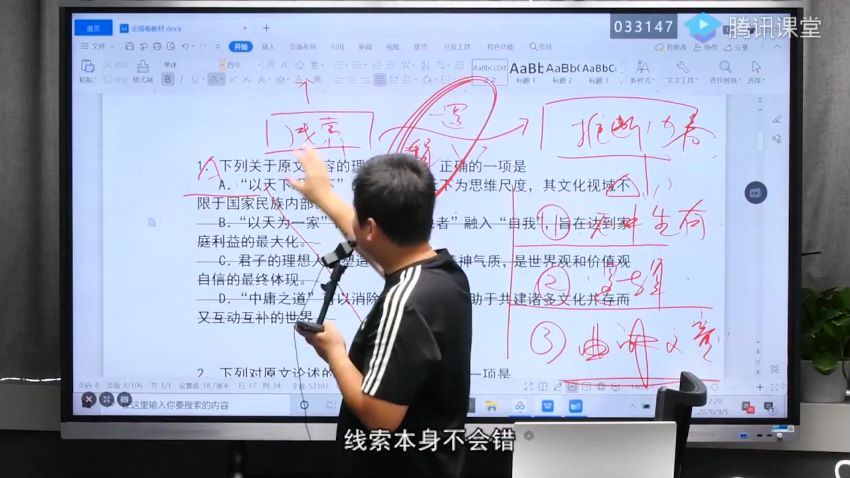 033147
腾讯课堂
首页 全国卷教材.docx
文件 开始 插入 页面布局 引用 审阅 视图 章节 开发工具 特色功能 查找
协作 分享
粘贴 黑体 四号
正文 标题 1 标题 2 标题 3
文字工具 查找替换 选择
线索
逻
推断内容
A
1. 下列关于原文 容的理 正确的一项是
A. “以天下 下为思维尺度，其文化视域不
限于国家民族内部。
B. “以天为一家” 者”融入“自我”，旨在达到家
庭利益的最大化。
C. 君子的理想人 塑造 神气质，是世界观和价值观
自信的最终体现。
D. “中庸之道” 以消除 助于共建诸多文化并存而
又互动互补的世界。
① 无中生有
②
③ 曲解文意
2. 下列对原文论述的 一项是
页码: 8 页面: 8/106 节: 1/1 设置值: 18.7厘米 行: 17 列: 34
在这里输入你要搜索的内容
2020/9/5
线索本身不会错